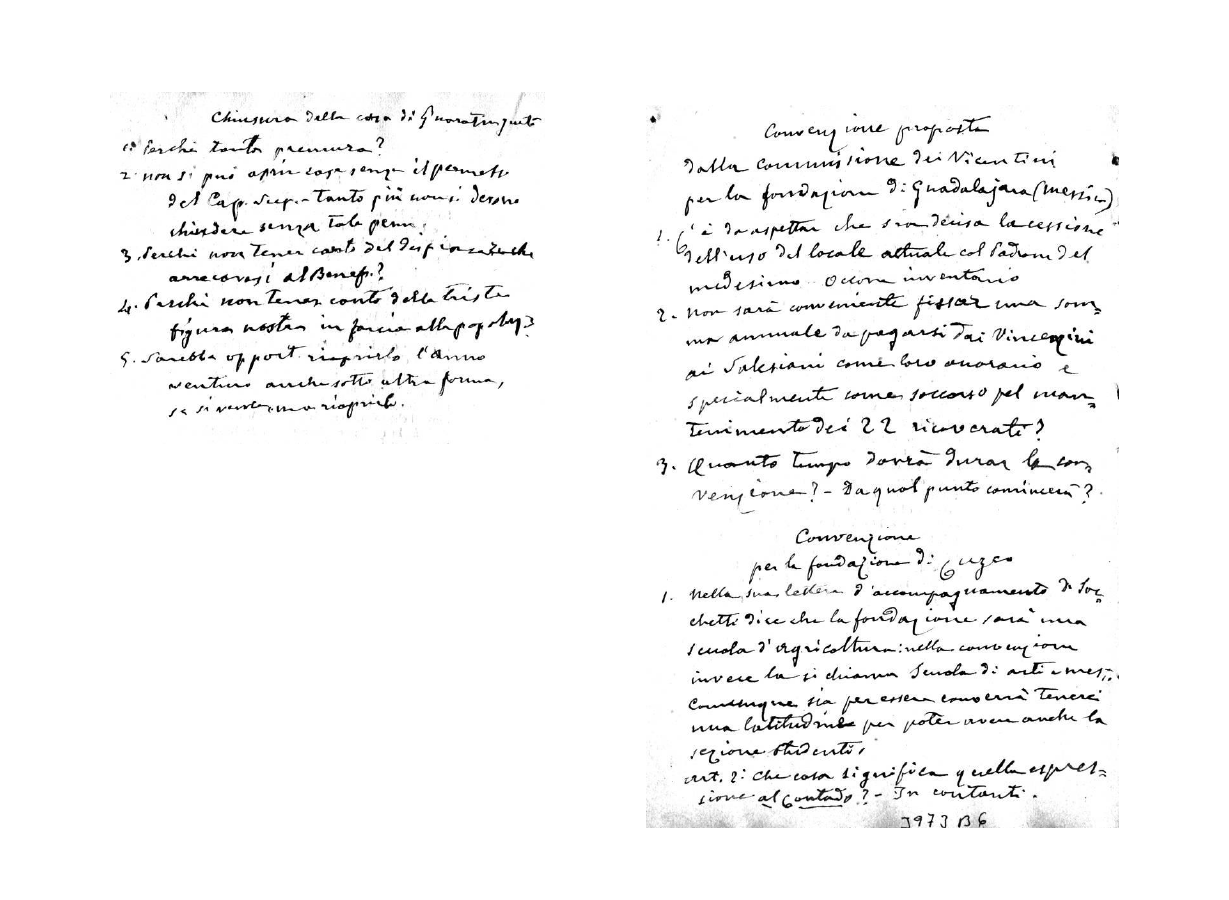 Chiusura della casa di Guaratinguetà
1º Perchè tanta premura?
2. non si può aprir casa senza il permesso
del Cap. Sup. - tanto più non si devono
chiudere senza tale perm.
3. Perchè non tener conto del dispiacere che
arrecavasi al Benef.?
4. Perchè non tener conto della trista
figura nostra in faccia alla popolaz?
5. Sarebbe opport. riaprirlo l'anno
venturo anche sotto altra forma,
se si venisse a riaprirlo.
Convenzione proposta
dalla Commissione dei Vicentini
per la fondazione di Guadalajara (Messico)
1. C'è da aspettar che sia decisa la cessione
dell'uso del locale attuale col Padrone del
medesimo. Occorre inventario
2. Non sarà conveniente fissar una som=
ma annuale da pagarsi dai Vincenzini
ai Salesiani come loro onorario e
specialmente come soccorso pel man=
tenimento dei 22 ricoverati?
3. Quanto tempo dovrà durar la con=
venzione? - Da qual punto comincerà?
Convenzione
per la fondazione di Cuzco
1. Nella sua lettera d'accompagnamento D. Soc=
chetti dice che la fondazione sarà una
scuola d'agricoltura: nella convenzione
invece la si chiama Scuola di arti e mest.
Comunque sia per essere converrà tenerci
una latitudine per poter avere anche la
sezione studenti,
art. 2: Che cosa significa quella espres=
sione al Contado? - In contanti.
J973 B6